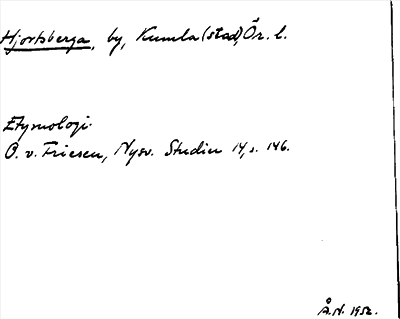 Hjortsberga, by, Kumla (stad), Ör. l.
Etymologi
O. v. Friesen, Nysv. Studier 14, s. 146.
Å. N. 1952.